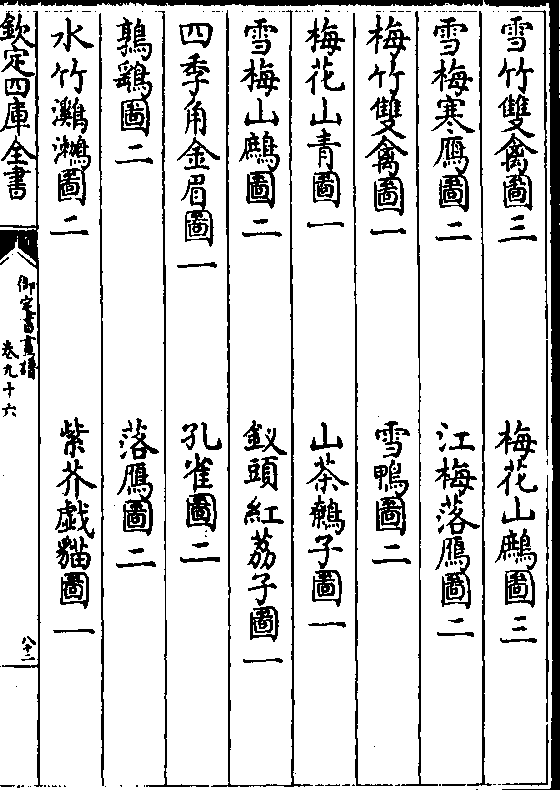 雪竹雙禽圖三　梅花山鷓圖三
雪梅寒鴈圖二　江梅落鴈圖二
梅竹雙禽圖一　雪鴨圖二
梅花山青圖一　山茶鶉子圖一
雪梅山鷓圖二　釵頭紅荔子圖一
四季角金眉圖一　孔雀圖二
鶉鷃圖二　落鴈圖二
水竹鸂鷘圖二　紫芥戯貓圖一
欽定四庫全書
御定書畫譜
卷九十六
八十二